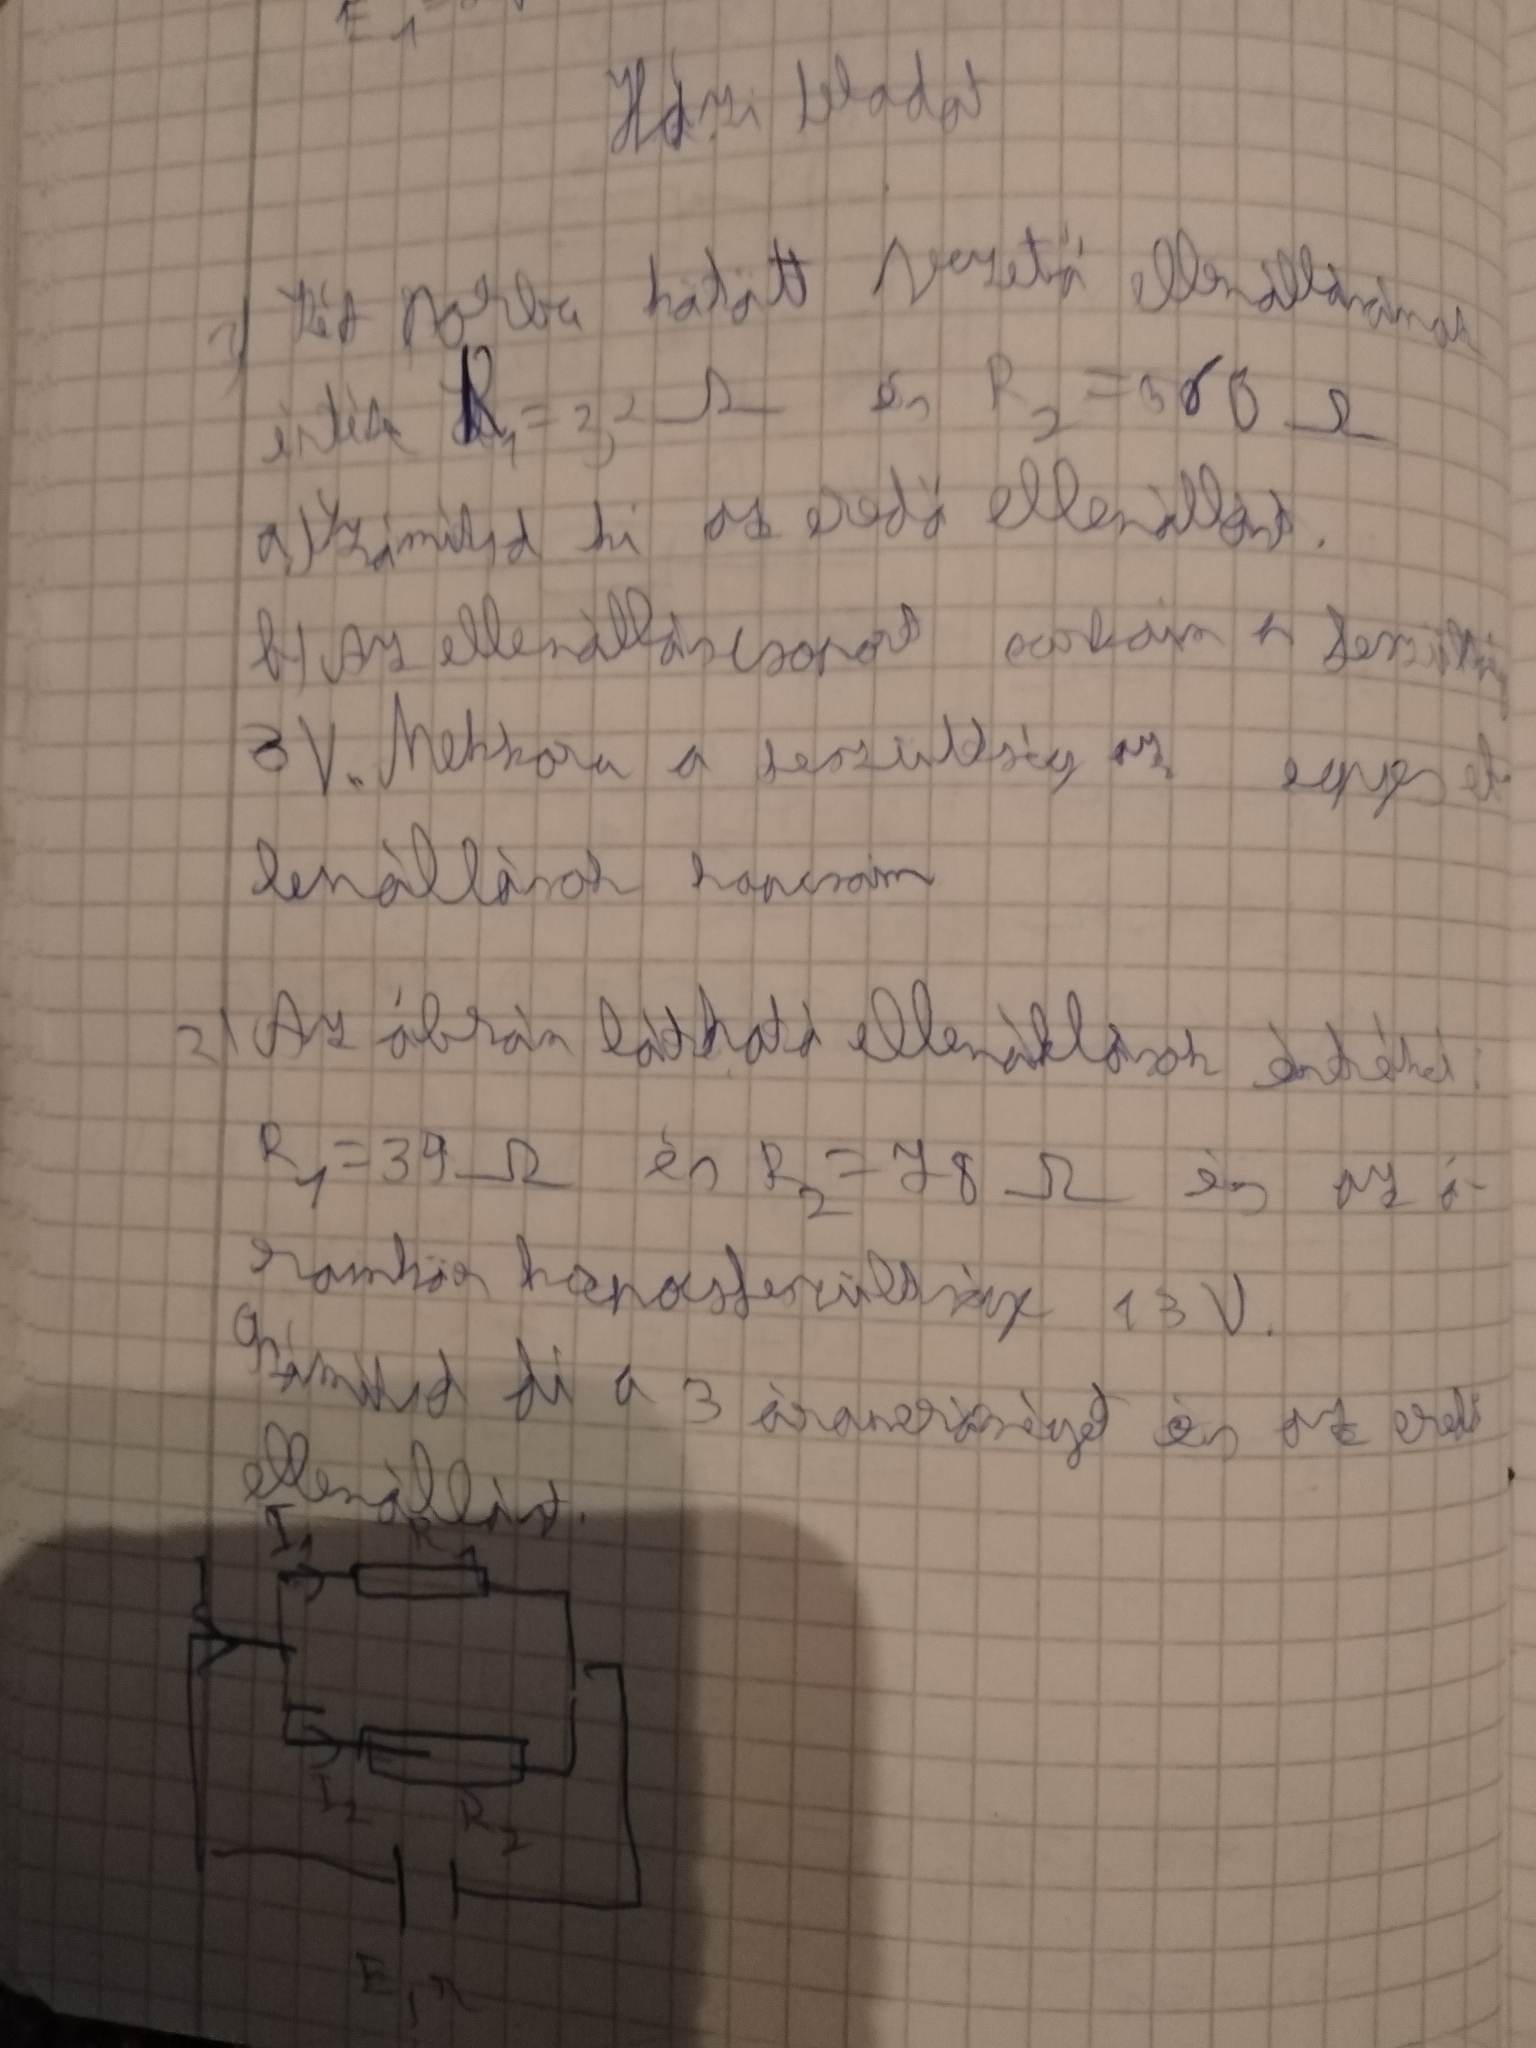 E1=
Házi feladat
1) Két sorba kötött vezető ellenállásának
értéke R1=2,2 Ω és R2=360 Ω
a) Számítsd ki az eredő ellenállást.
b) Az ellenálláscsoport sarkain a feszültség
3V. Mekkora a feszültség az egyes el-
lenállások kapcsain
2) Az ábrán látható ellenállások értékei:
R1=39 Ω és R2=78 Ω és az á-
ramkör kapocsfeszültsége 13 V.
Számítsd ki a 3 áramerősséget és az eredő
ellenállást.
I1 R1
I
I2 R2
E, r